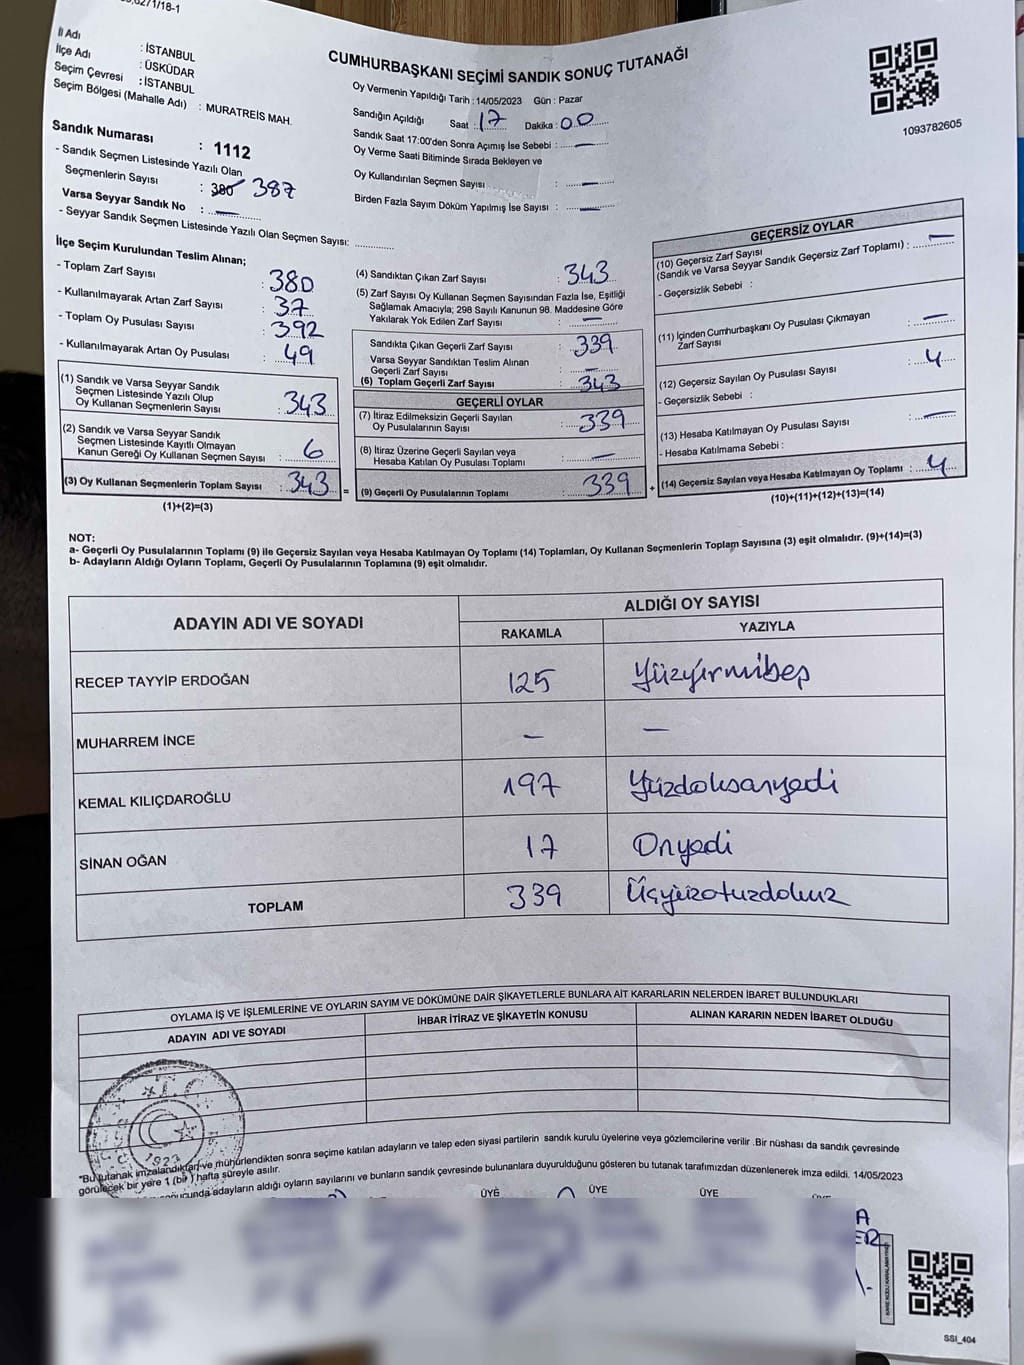 İl Adı : İSTANBUL
İlçe Adı : ÜSKÜDAR
Seçim Çevresi : İSTANBUL
Seçim Bölgesi (Mahalle Adı) : MURATREİS MAH.
Sandık Numarası : 1112
- Sandık Seçmen Listesinde Yazılı Olan
Seçmenlerin Sayısı : 380 387
Varsa Seyyar Sandık No : —
- Seyyar Sandık Seçmen Listesinde Yazılı Olan Seçmen Sayısı: ..............
CUMHURBAŞKANI SEÇİMİ SANDIK SONUÇ TUTANAĞI
Oy Vermenin Yapıldığı Tarih : 14/05/2023 Gün : Pazar
Sandığın Açıldığı Saat : 17 Dakika : 00
Sandık Saat 17:00'den Sonra Açımış İse Sebebi : —
Oy Verme Saati Bitiminde Sırada Bekleyen ve
Oy Kullandırılan Seçmen Sayısı : —
Birden Fazla Sayım Döküm Yapılmış İse Sayısı : —
1093782605
İlçe Seçim Kurulundan Teslim Alınan;
- Toplam Zarf Sayısı : 380
- Kullanılmayarak Artan Zarf Sayısı : 37
- Toplam Oy Pusulası Sayısı : 392
- Kullanılmayarak Artan Oy Pusulası : 49
(1) Sandık ve Varsa Seyyar Sandık
Seçmen Listesinde Yazılı Olup
Oy Kullanan Seçmenlerin Sayısı : 343
(2) Sandık ve Varsa Seyyar Sandık
Seçmen Listesinde Kayıtlı Olmayan
Kanun Gereği Oy Kullanan Seçmen Sayısı : 6
(3) Oy Kullanan Seçmenlerin Toplam Sayısı : 343 =
(1)+(2)=(3)
(4) Sandıktan Çıkan Zarf Sayısı : 343
(5) Zarf Sayısı Oy Kullanan Seçmen Sayısından Fazla İse, Eşitliği
Sağlamak Amacıyla; 298 Sayılı Kanunun 98. Maddesine Göre
Yakılarak Yok Edilen Zarf Sayısı : —
Sandıkta Çıkan Geçerli Zarf Sayısı : 339
Varsa Seyyar Sandıktan Teslim Alınan
Geçerli Zarf Sayısı : —
(6) Toplam Geçerli Zarf Sayısı : 343
GEÇERLİ OYLAR
(7) İtiraz Edilmeksizin Geçerli Sayılan
Oy Pusulalarının Sayısı : 339
(8) İtiraz Üzerine Geçerli Sayılan veya
Hesaba Katılan Oy Pusulası Toplamı : —
(9) Geçerli Oy Pusulalarının Toplamı : 339 +
GEÇERSİZ OYLAR
(10) Geçersiz Zarf Sayısı
(Sandık ve Varsa Seyyar Sandık Geçersiz Zarf Toplamı) : —
- Geçersizlik Sebebi :
(11) İçinden Cumhurbaşkanı Oy Pusulası Çıkmayan
Zarf Sayısı : —
(12) Geçersiz Sayılan Oy Pusulası Sayısı : 4
- Geçersizlik Sebebi :
(13) Hesaba Katılmayan Oy Pusulası Sayısı : —
- Hesaba Katılmama Sebebi :
(14) Geçersiz Sayılan veya Hesaba Katılmayan Oy Toplamı : 4
(10)+(11)+(12)+(13)=(14)
NOT:
a- Geçerli Oy Pusulalarının Toplamı (9) ile Geçersiz Sayılan veya Hesaba Katılmayan Oy Toplamı (14) Toplamları, Oy Kullanan Seçmenlerin Toplam Sayısına (3) eşit olmalıdır. (9)+(14)=(3)
b- Adayların Aldığı Oyların Toplamı, Geçerli Oy Pusulalarının Toplamına (9) eşit olmalıdır.
ADAYIN ADI VE SOYADI ALDIĞI OY SAYISI
RAKAMLA YAZIYLA
RECEP TAYYİP ERDOĞAN 125 Yüzyirmibeş
MUHARREM İNCE — —
KEMAL KILIÇDAROĞLU 197 Yüzdoksanyedi
SİNAN OĞAN 17 Onyedi
TOPLAM 339 Üçyüzotuzdokuz
OYLAMA İŞ VE İŞLEMLERİNE VE OYLARIN SAYIM VE DÖKÜMÜNE DAİR ŞİKAYETLERLE BUNLARA AİT KARARLARIN NELERDEN İBARET BULUNDUKLARI
ADAYIN ADI VE SOYADI İHBAR İTİRAZ VE ŞİKAYETİN KONUSU ALINAN KARARIN NEDEN İBARET OLDUĞU
*Bu tutanak imzalandıktan ve mühürlendikten sonra seçime katılan adayların ve talep eden siyasi partilerin sandık kurulu üyelerine veya gözlemcilerine verilir .Bir nüshası da sandık çevresinde
görülecek bir yere 1 (bir) hafta süreyle asılır.
adayların aldığı oyların sayılarını ve bunların sandık çevresinde bulunanlara duyurulduğunu gösteren bu tutanak tarafımızdan düzenlenerek imza edildi. 14/05/2023
ÜYE ÜYE ÜYE
1923
SSI_404